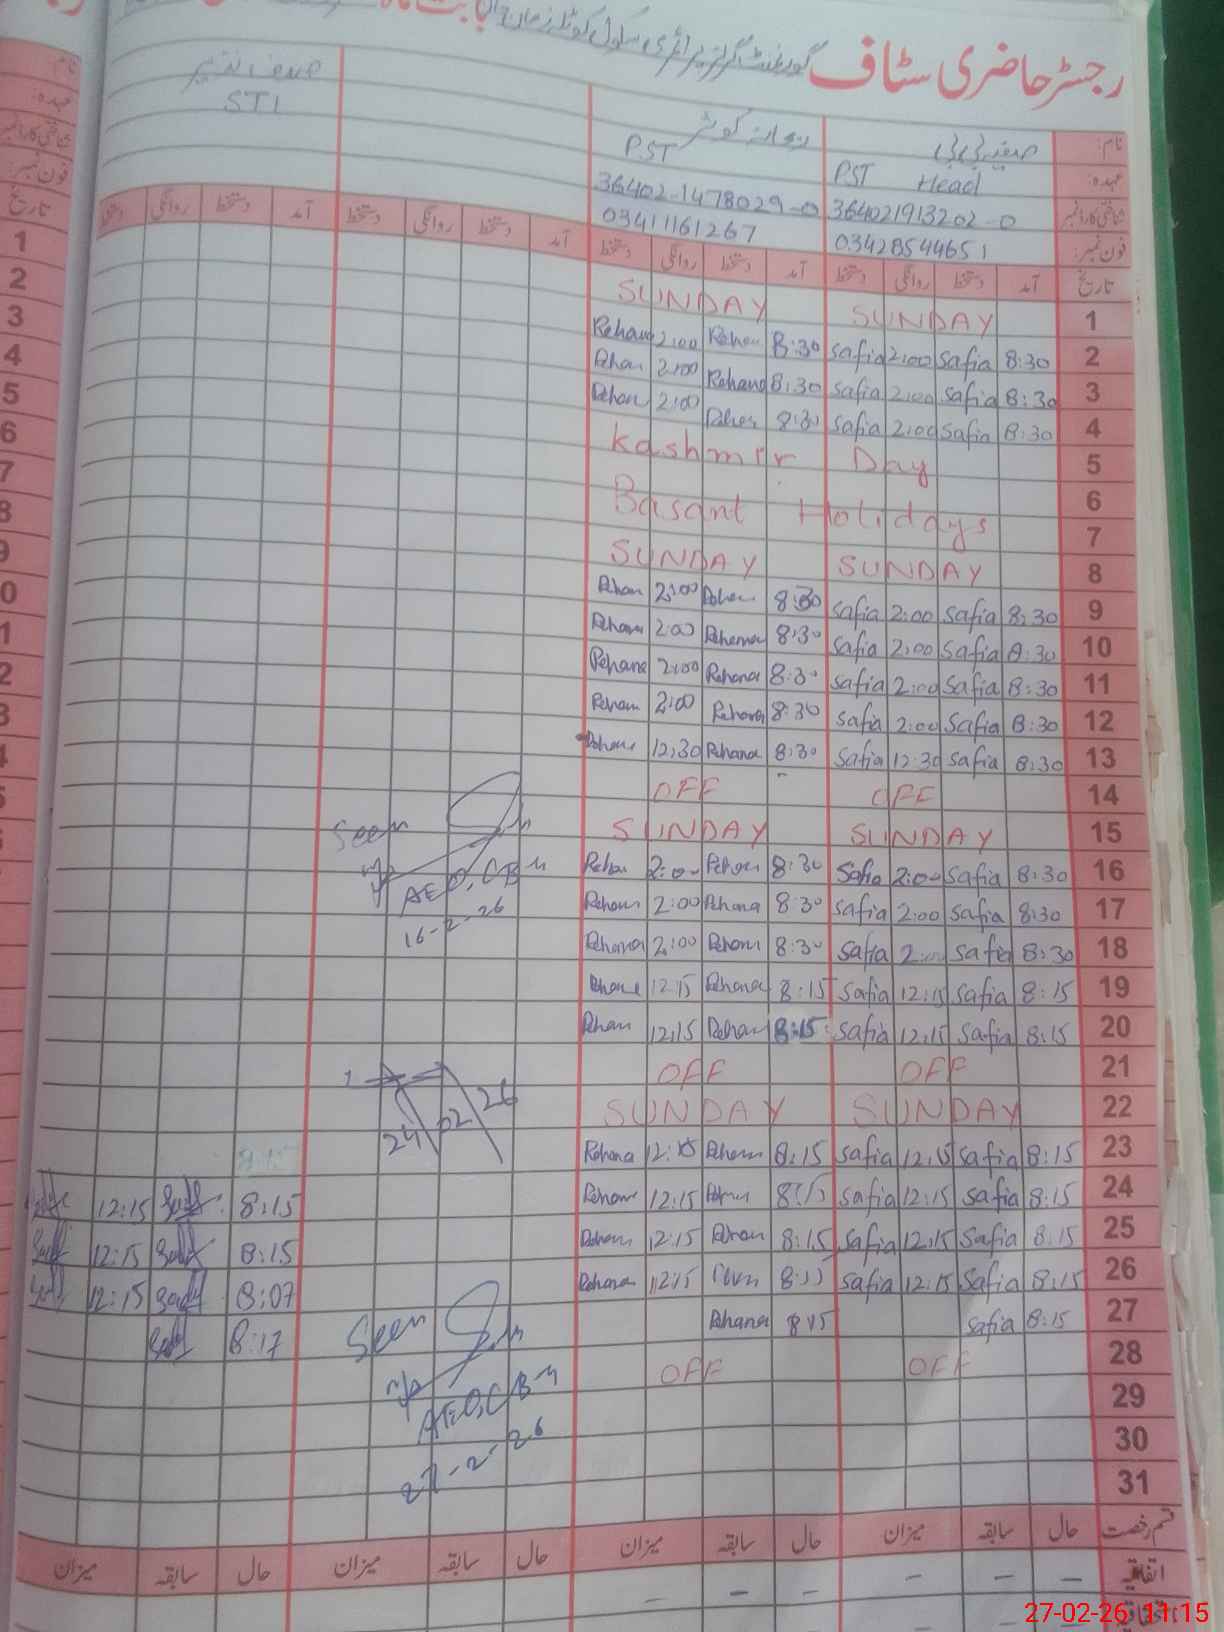 رجسٹر حاضری سٹاف گورنمنٹ گرلز پرائمری سکول بابت ماہ
نام: صفیہ بی بی ریحانہ کوثر صدف نذیر
عہدہ: PST Head PST STI
شناختی کارڈ نمبر 364021913202-0 36402-1478029-0
فون نمبر: 03428544651 03411161267
تاریخ آمد دستخط روانگی دستخط آمد دستخط روانگی دستخط آمد دستخط روانگی دستخط آمد دستخط روانگی دستخط
1 SUNDAY SUNDAY
2 8:30 Safia 2:00 Safia 8:30 Rehan 2:00 Rehana
3 8:30 Safia 2:00 Safia 8:30 Rehana 2:00 Rehan
4 8:30 Safia 2:00 Safia 8:30 Rehan 2:00 Rehan
5 Kashmir Day
6 Basant Holidays
7
8 SUNDAY SUNDAY
9 8:30 Safia 2:00 Safia 8:30 Rehan 2:00 Rehan
10 8:30 Safia 2:00 Safia 8:30 Rehana 2:00 Rehana
11 8:30 Safia 2:00 Safia 8:30 Rehana 2:00 Rehana
12 8:30 Safia 2:00 Safia 8:30 Rehana 2:00 Rehan
13 8:30 Safia 12:30 Safia 8:30 Rehana 12:30 Rehana
14 OFF OFF
15 SUNDAY SUNDAY
Seen
16 8:30 Safia 2:00 Safia 8:30 Rehan 2:00 Rehan
AEO, CBM
17 8:30 Safia 2:00 Safia 8:30 Rehana 2:00 Rehan
16-2-26
18 8:30 Safia 2:00 Safia 8:30 Rehana 2:00 Rehana
19 8:15 Safia 12:15 Safia 8:15 Rehana 12:15 Rehana
20 8:15 Safia 12:15 Safia 8:15 Rehan 12:15 Rehan
21 OFF OFF
22 SUNDAY SUNDAY
24/02/26
23 8:15 Safia 12:15 Safia 8:15 Rehana 12:15 Rehana
24 8:15 Safia 12:15 Safia 8:15 12:15 Rehana 8:15 12:15
25 8:15 Safia 12:15 Safia 8:15 Rehan 12:15 Rehana 8:15 12:15
26 8:15 Safia 12:15 Safia 8:15 12:15 Rehana 8:07 12:15
27 8:15 Safia 8:15 Rehana 8:17
Seen
28 OFF OFF
AEO, CBM
29
27-2-26
30
31
قسم رخصت حال سابقہ میزان حال سابقہ میزان حال سابقہ میزان حال سابقہ میزان
اتفاقیہ – – – – – –
27-02-26 11:15